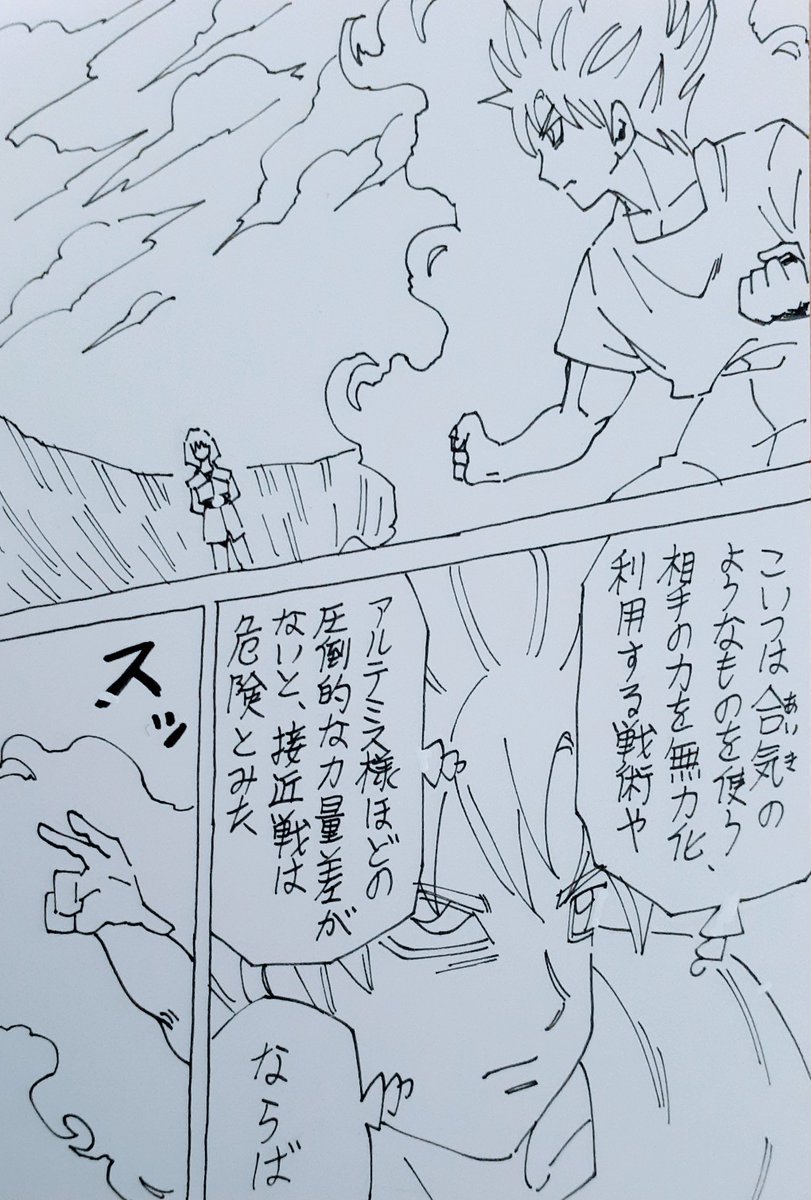 こいつは合気の
あいき
ようなものを使う、
相手の力を無力化、
利用する戦術や
アルテミス様ほどの
圧倒的な力量差が
ないと、接近戦は
危険とみた
ならば
スッ